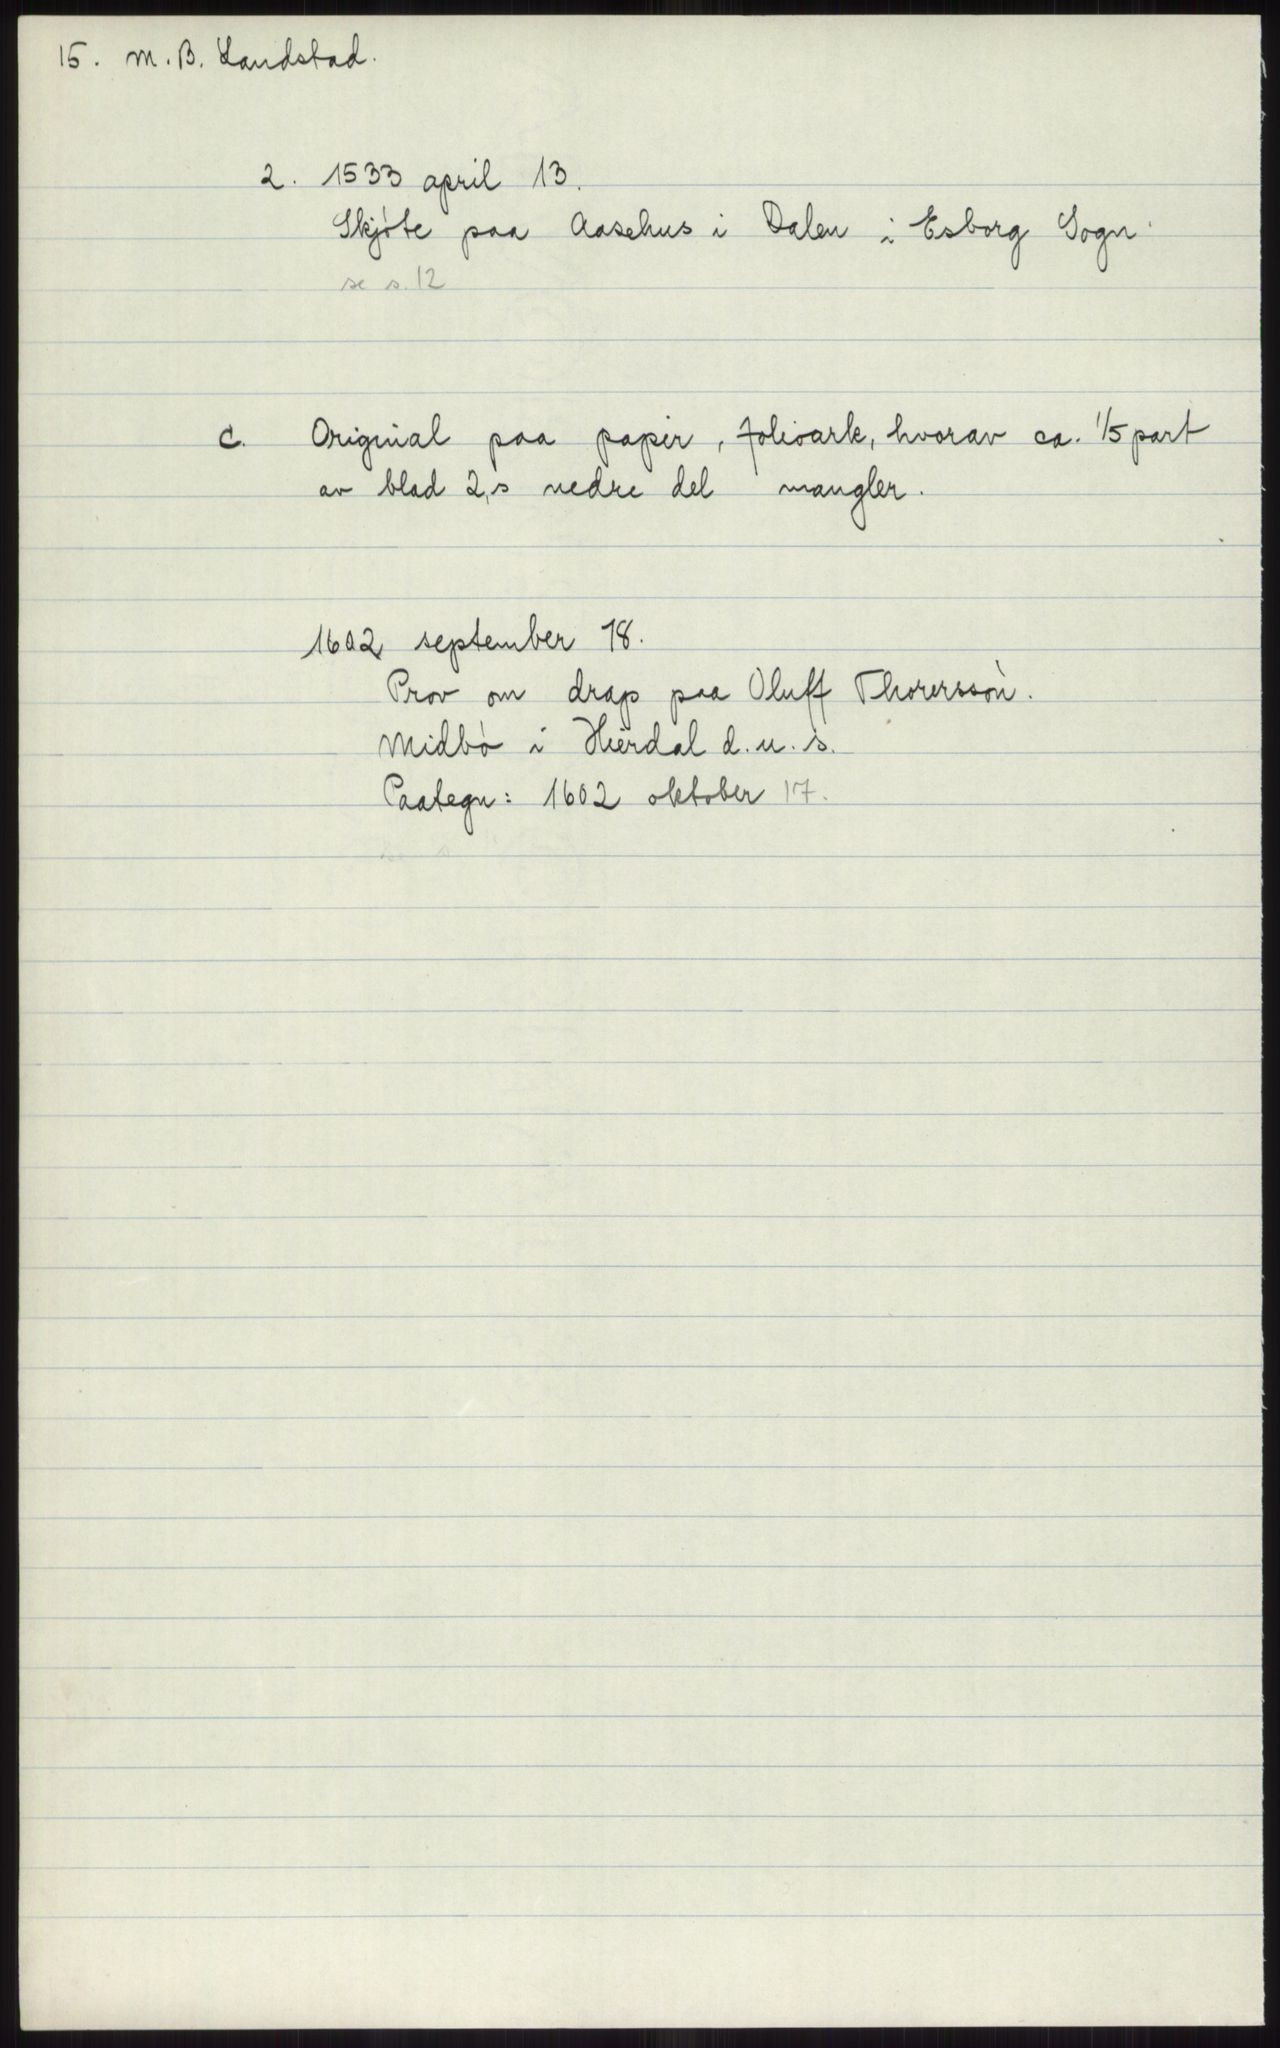 15. M. B. Landstad.
2. 1533 april 13.
Skjöte paa Aasehus i Dalen i Esborg Sogn.
se s. 12
C. Original paa papir, folioark, hvorav ca. 1/5 part
av blad 2,s nedre del mangler.
1602 september 18.
Prov om drap paa Oluff Thorersson.
Midbö i Hierdal d. u. s.
Paategn: 1602 oktober 17.